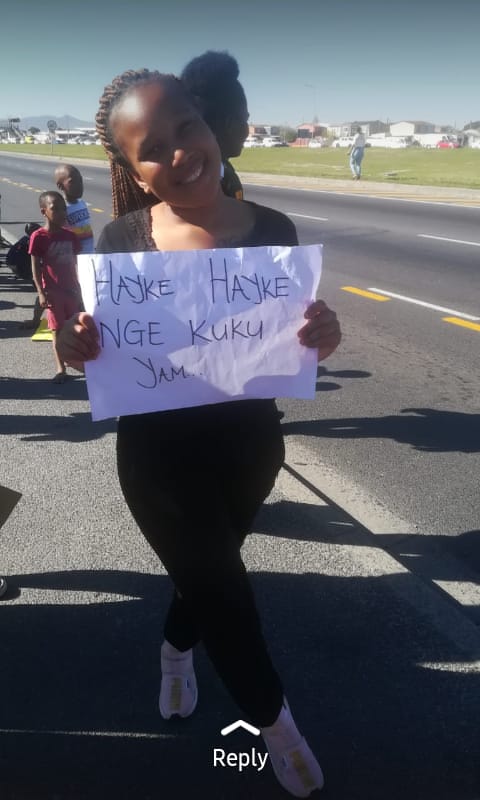 HAYKE HAYKE
NGE KUKU
YAM...
Reply